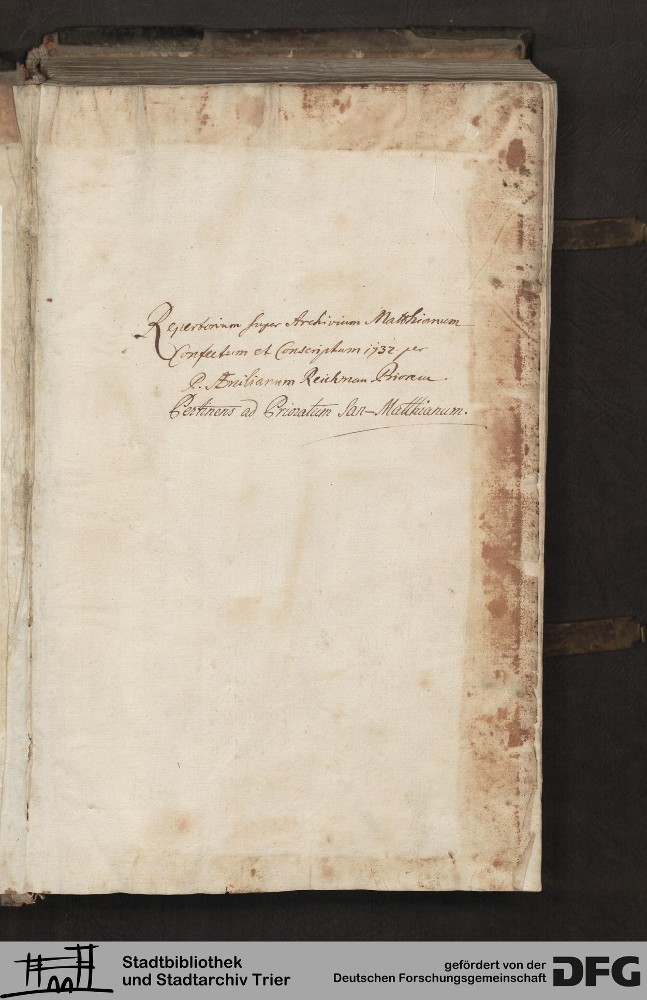 Repertorium super Archivium Matthianum
Confectum et Conscriptum 1732 per
P. Æmilianum Reichman Priorem.
Pertinens ad Prioratum San-Matthianum.
Stadtbibliothek
und Stadtarchiv Trier
gefördert von der
Deutschen Forschungsgemeinschaft
DFG